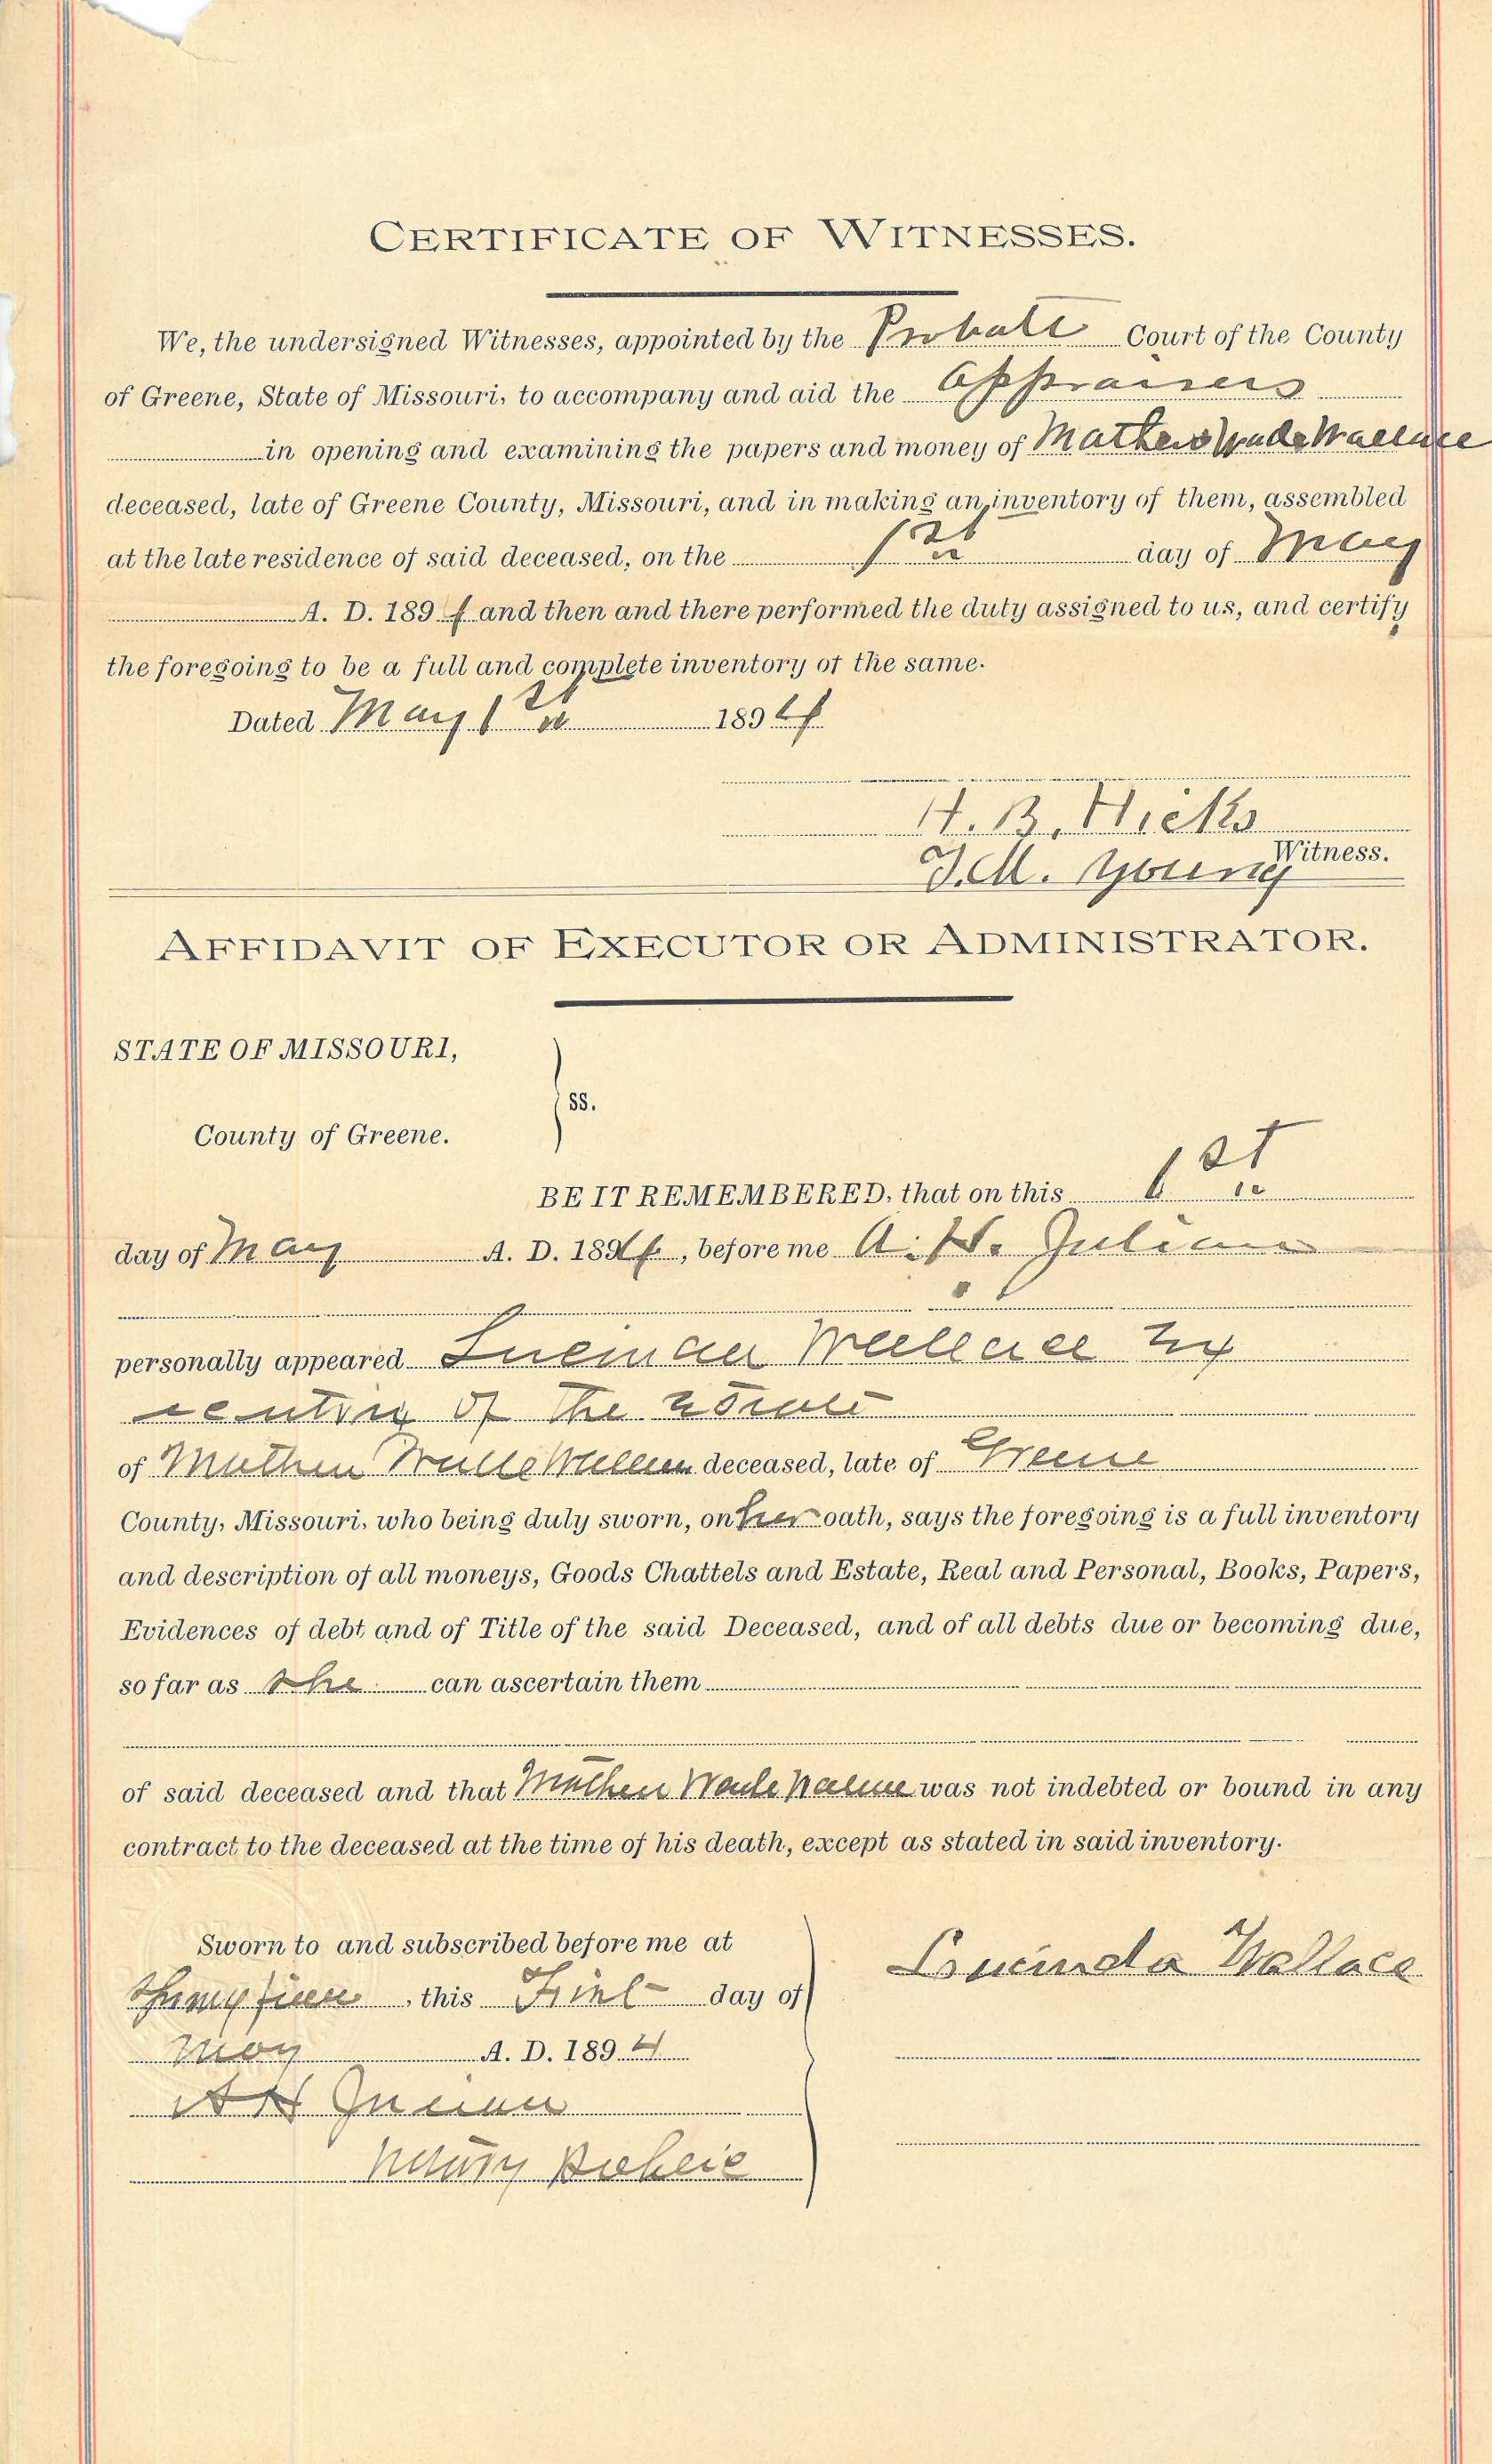 CERTIFICATE OF WITNESSES.
We, the undersigned Witnesses, appointed by the Probate Court of the County
of Greene, State of Missouri, to accompany and aid the Appraisers
in opening and examining the papers and money of Mathew Wade Wallace
deceased, late of Greene County, Missouri, and in making an inventory of them, assembled
at the late residence of said deceased, on the 1st day of May
A. D. 1894 and then and there performed the duty assigned to us, and certify
the foregoing to be a full and complete inventory of the same.
Dated May 1st 1894
H. B. Hicks
Witness.
J. M. Young
AFFIDAVIT OF EXECUTOR OR ADMINISTRATOR.
STATE OF MISSOURI,
ss.
County of Greene.
BE IT REMEMBERED, that on this 1st
day of May A. D. 1894, before me A. H. Julian
personally appeared Lucinda Wallace Ex
ecutrix of the Estate
of Mathew Wade Wallace deceased, late of Greene
County, Missouri, who being duly sworn, on her oath, says the foregoing is a full inventory
and description of all moneys, Goods Chattels and Estate, Real and Personal, Books, Papers,
Evidences of debt and of Title of the said Deceased, and of all debts due or becoming due,
so far as she can ascertain them
of said deceased and that Mathew Wade Wallace was not indebted or bound in any
contract to the deceased at the time of his death, except as stated in said inventory.
Sworn to and subscribed before me at
Lucinda Wallace
, this First day of
May A. D. 1894
A H Julian
Notary Public